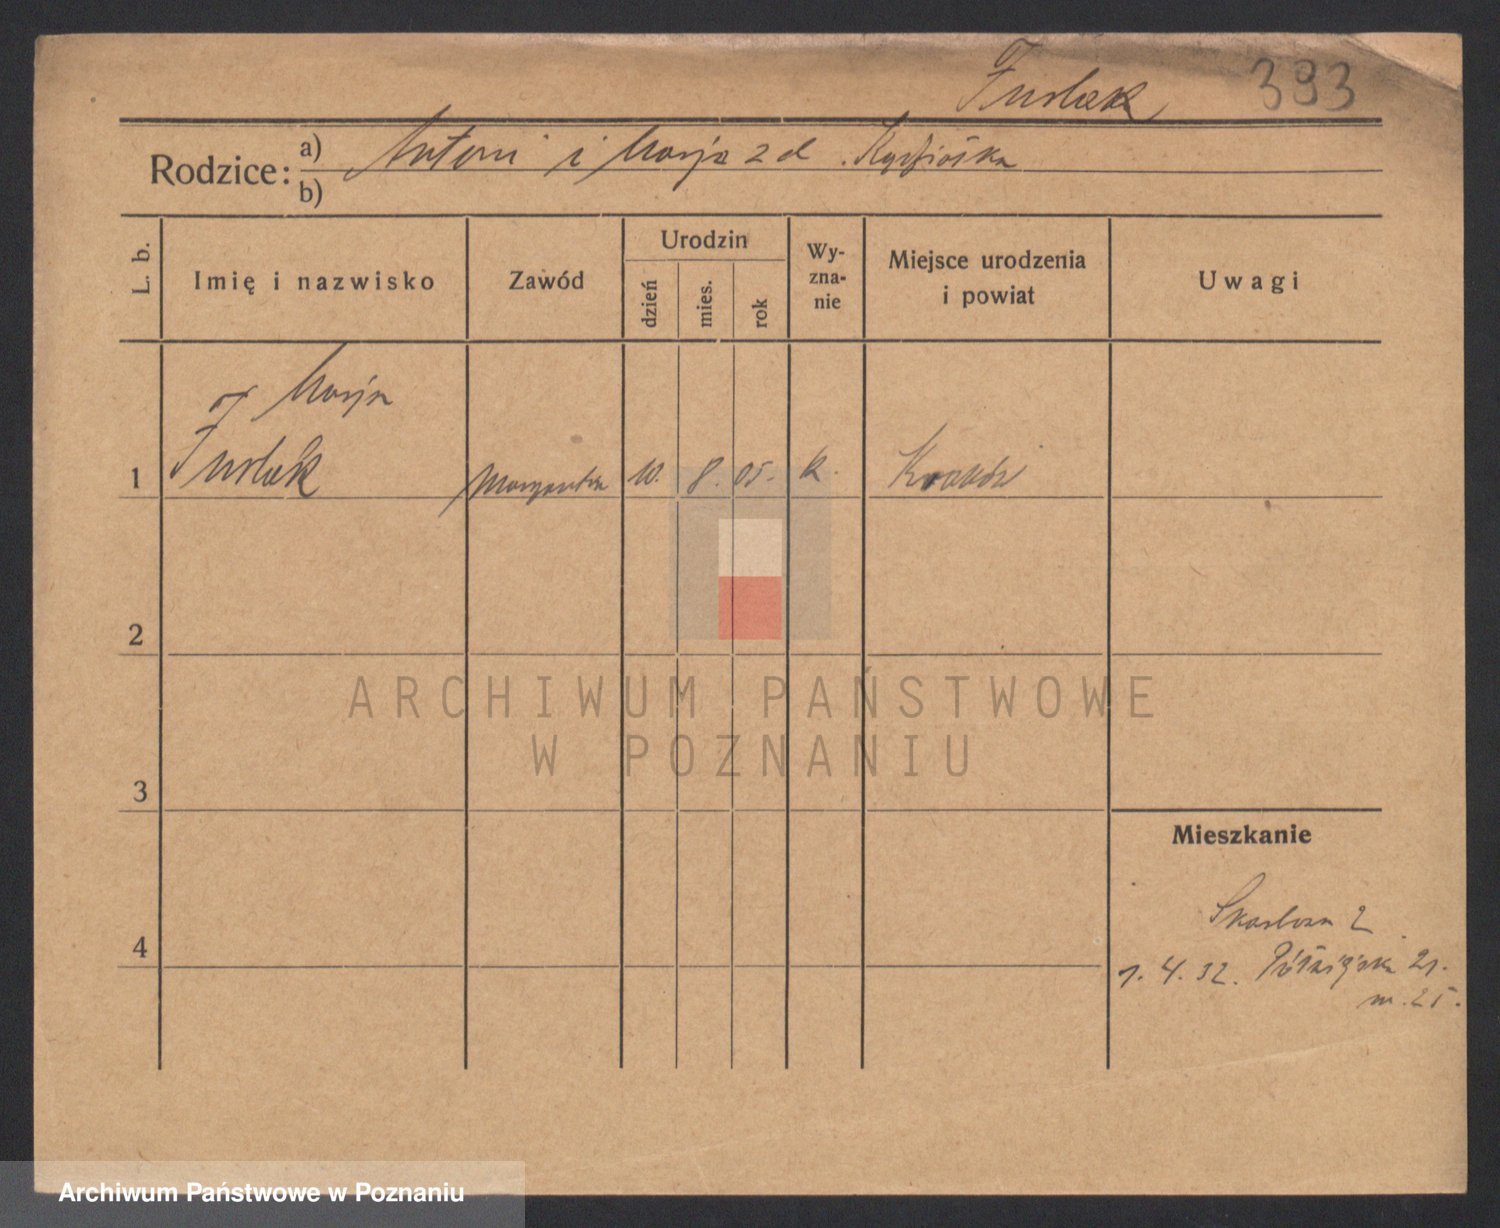 Furlak 393
Rodzice: a) Antoni i Marja z d.
b)
L. b.
Imię i nazwisko
Zawód
Urodzin
dzień
mies.
rok
Wy-
zna-
nie
Miejsce urodzenia
i powiat
Uwagi
Marja
1 Furlak 10. 8. 05. k. Kraków
2
3
4
Mieszkanie
2
1. 4. 32. 21.
m. 25.
ARCHIWUM PAŃSTWOWE
W POZNANIU
Archiwum Państwowe w Poznaniu